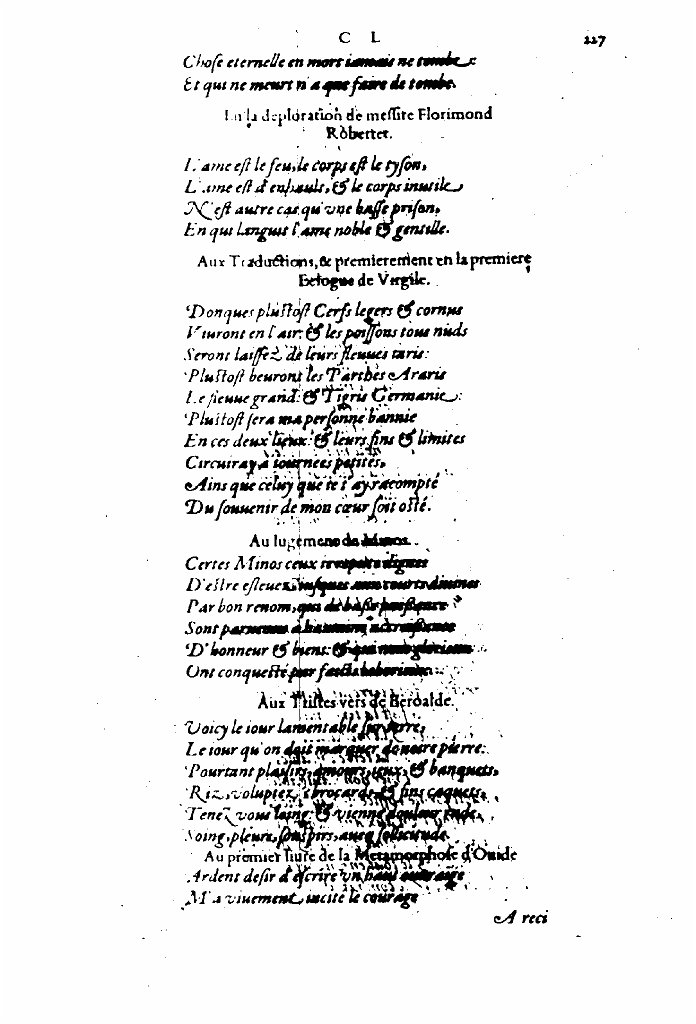 C L 227
Chose eternelle en mort iamais ne tombe:
Et qui ne meurt n'a que faire de tombe.
En la deploration de messire Florimond
Robertet.
L'ame est le feu, le corps est le tyson,
L'ame est d'enhault, & le corps inutile
N'est autre cas qu'vne basse prison,
En qui languit l'ame noble & gentille.
Aux Traductions, & premierement en la premiere
Eclogue de Vergile.
Donques plustost Cerfs legers & cornus
Viuront en l'air: & les poissons tous nuds
Seront laissez de leurs fleuues taris:
Plustost beuront les Parthes Araris
Le fleuue grand: & Tigris Germanie:
Plustost sera ma personne bannie
En ces deux lieux: & leurs fins & limites
Circuiray à iournees petites,
Ains que celuy que ie t'ay racompté
Du souuenir de mon cœur soit osté.
Au Iugement de Minos.
Certes Minos ceux dignes
D'estre esleuez iusques aux courts diuines
Par bon renom, qui de basse puissance
Sont paruenus à
D'honneur & biens: &
Ont conquesté par
Aux Tristes vers de Beroalde.
Voicy le iour lamentable sur terre,
Le iour qu'on doit marquer de noire pierre:
Pourtant plaisirs, amours, ieux, & banquets,
Riz, voluptez, brocards, & fins caquets,
Tenez vous loing: & vienne douleur rude,
Soing, pleurs, souspirs, auec sollicitude.
Au premier liure de la Metamorphose d'Ouide
Ardent desir d'escrire vn hault ouurage
M'a viuement incité le courage
A reci